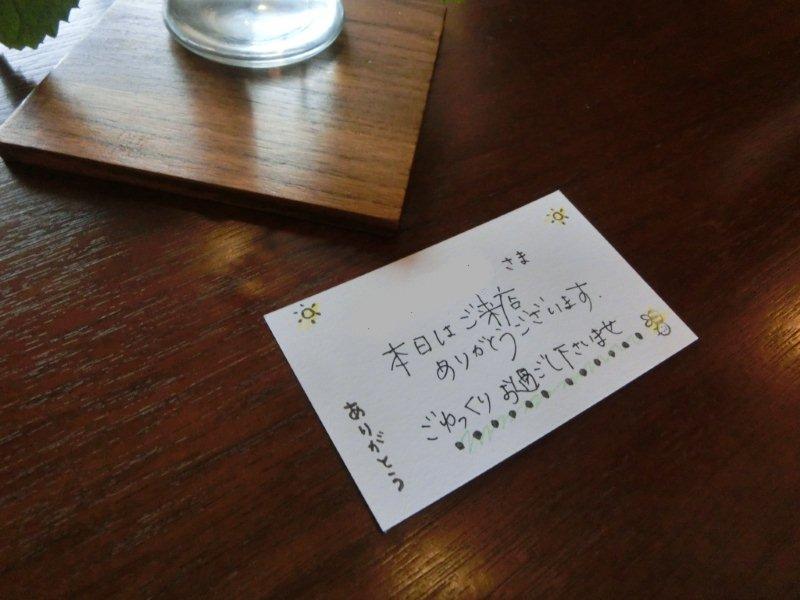 さま
本日はご来店
ありがとうございます.
ごゆっくりお過ごし下さいませ
ありがとう